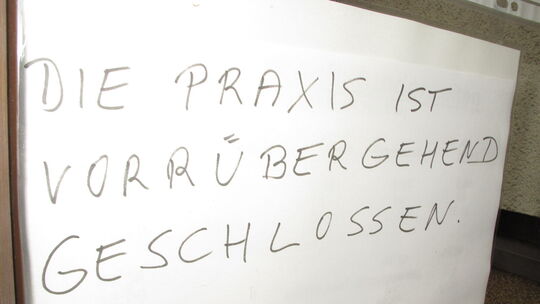 DIE PRAXIS IST
VORRÜBERGEHEND
GESCHLOSSEN.